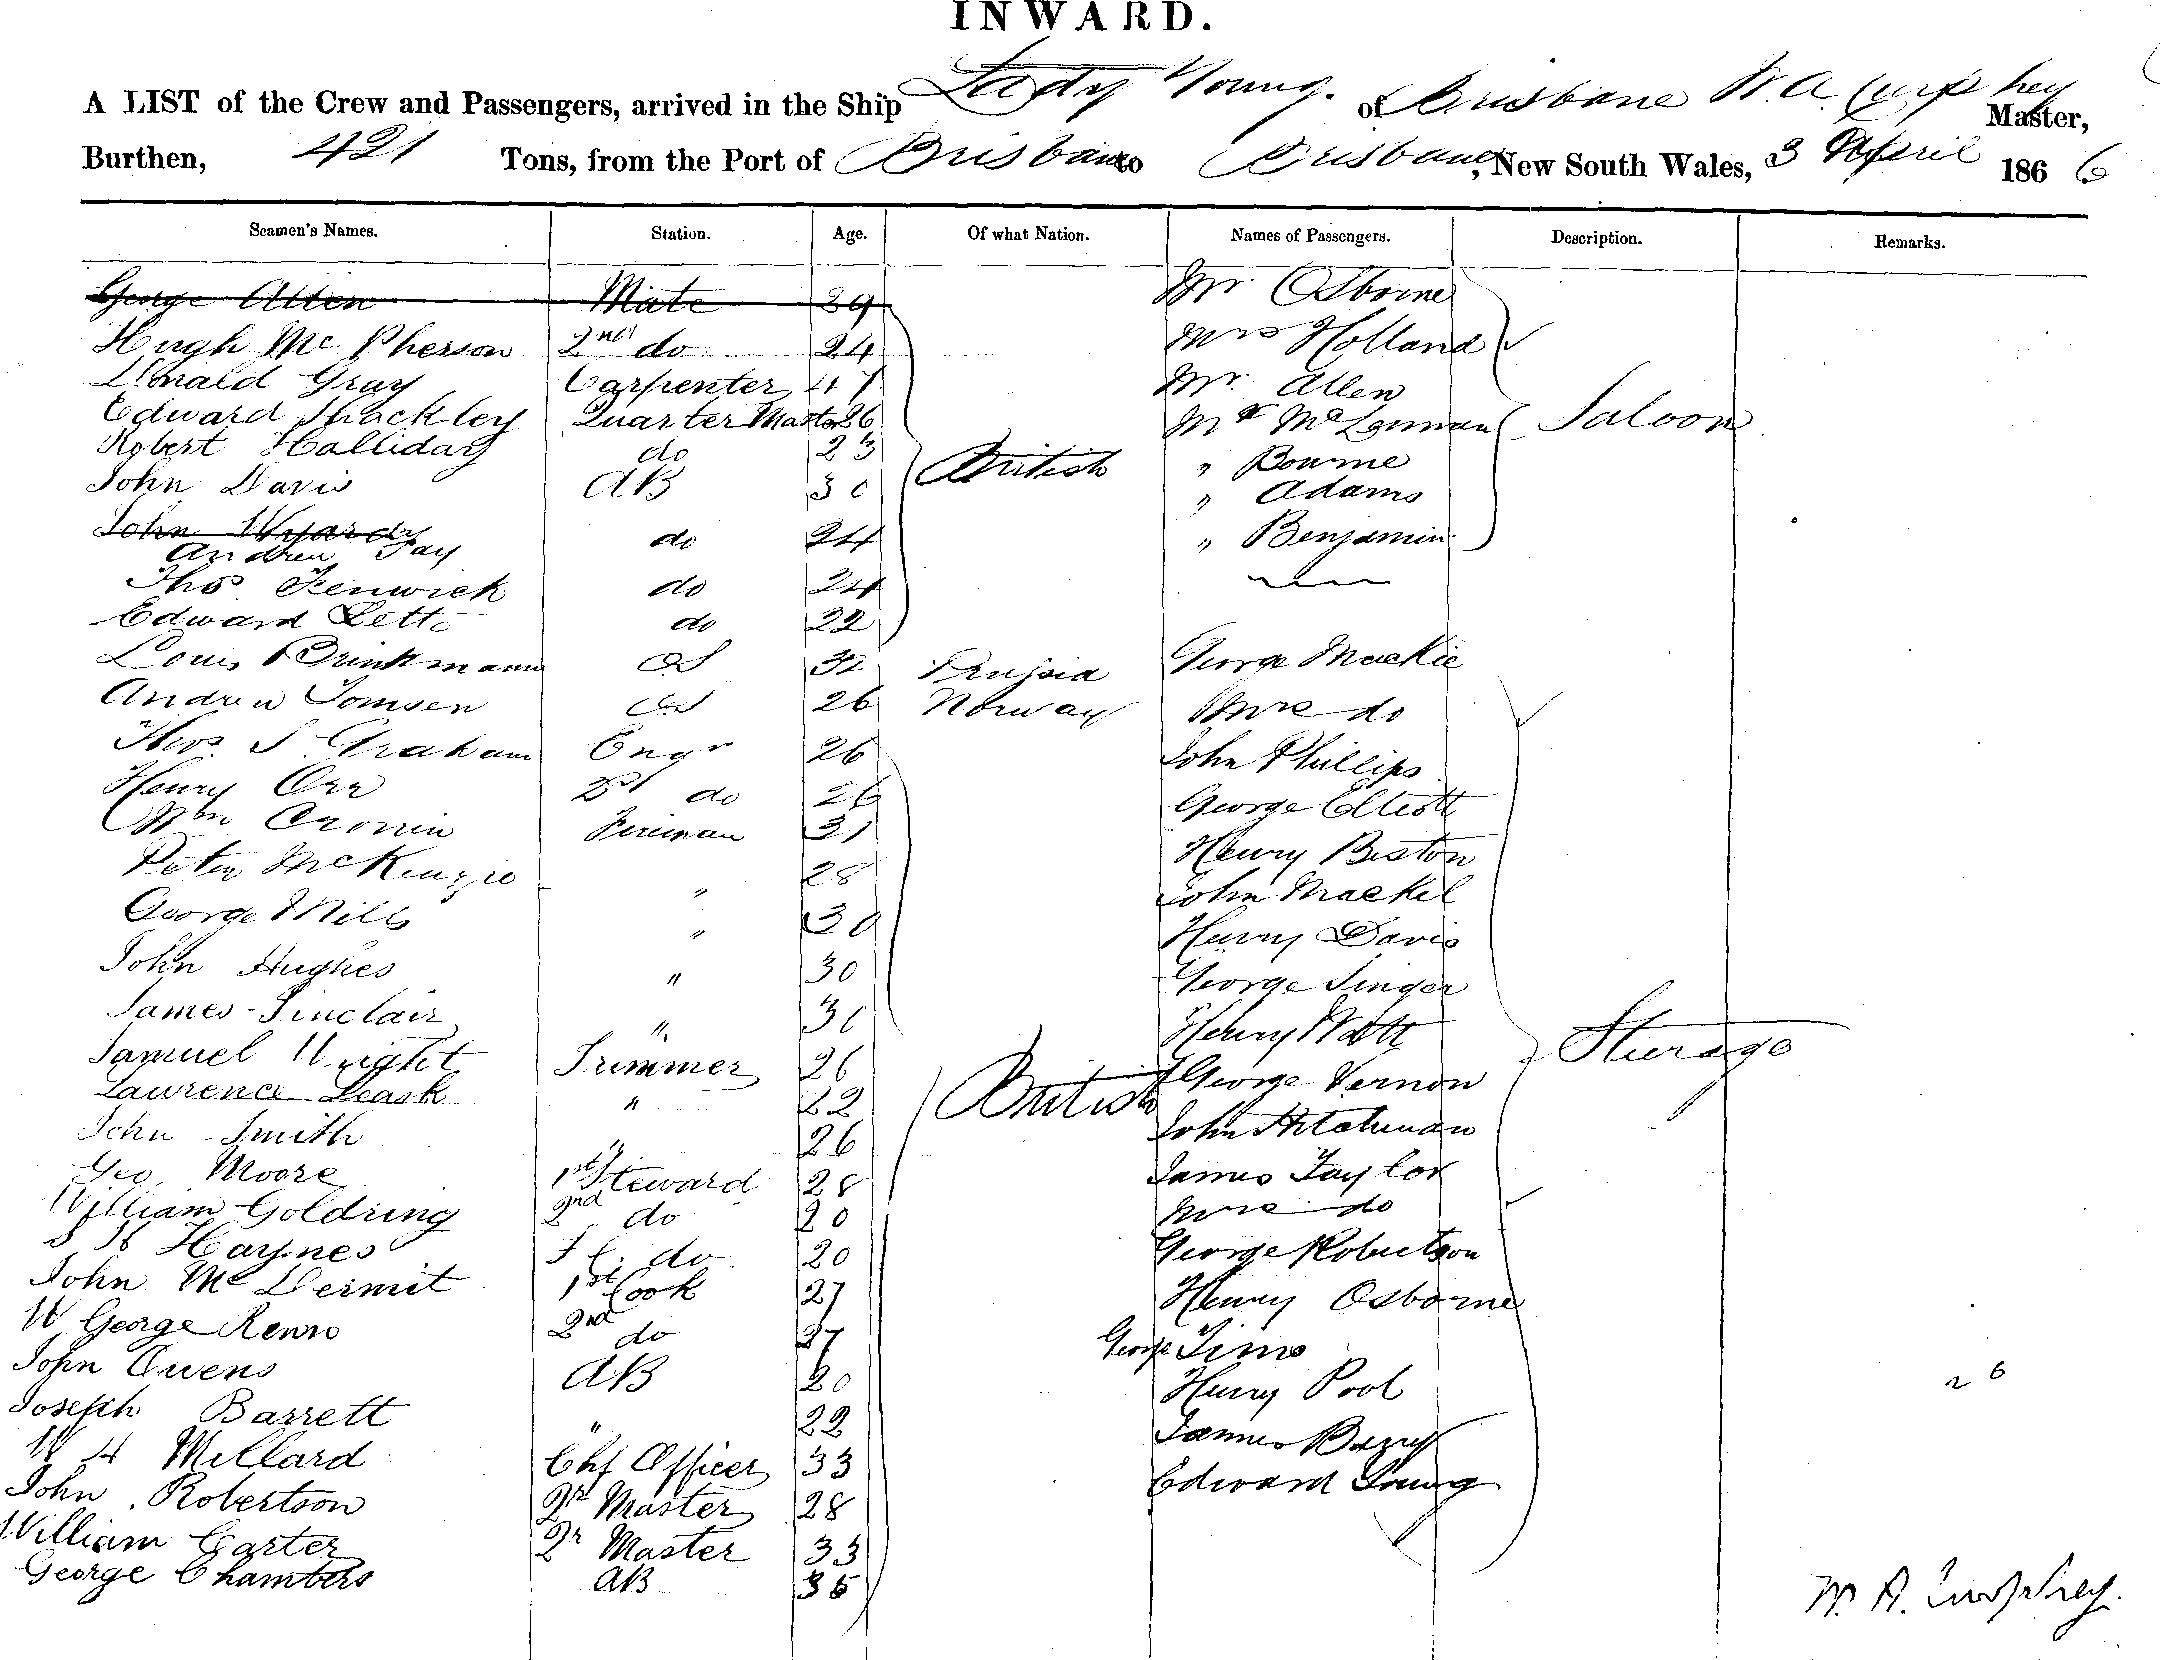 INWARD.
A LIST of the Crew and Passengers, arrived in the Ship Lady Young. of Brisbane W. A. Curphey Master,
Burthen, 421 Tons, from the Port of Brisbane to Brisbane, New South Wales, 3 April 1866
Seamen's Names. Station. Age. Of what Nation. Names of Passengers. Description. Remarks.
George Allen Mate 29 Mr Osborne
Hugh McPherson 2nd do 24 Mrs Holland
Donald Gray Carpenter 47 Mr. Allen
Edward Shackley Quarter Master 26 Mr McLennan Saloon
Robert Halliday do 23 British " Bourne
John Davis AB 30 " Adams
John do 24 " Benjamin
Andrew Fay
Thos Fenwick do 24
Edward Letts do 22
Louis Brinkmann OS 32 Prussia George Mackie
Andrew Tomsen OS 26 Norway Mrs do
Thos. S Graham Engr 26 John Phillips
Henry Orr 2nd do 26 George Elliott
Wm Cronin Fireman 31 Henry Biston
Peter McKenzie " 28 John Mackel
George Mills " 30 Henry Davis
John Hughes " 30 George Singer
James Sinclair " 30 Henry Watt Steerage
Samuel Wright Trimmer 26 British George Vernon
Laurence Leask " 22 John
John Smith " 26 James Taylor
Geo. Moore 1st Steward 28 Mrs do
William Goldring 2nd do 20 George Robertson
Haynes do 20 Henry Osborne
John McDermit 1st Cook 27 George Tims
W George Renno 2nd do 27 Henry Pool
John Owens AB 20 26
Joseph Barrett " 22 James
W H Millard Chf Officer 33 Edward Young
John Robertson Qr Master 28
William Carter Qr Master 33
George Chambers AB 35
W. A. Curphey.